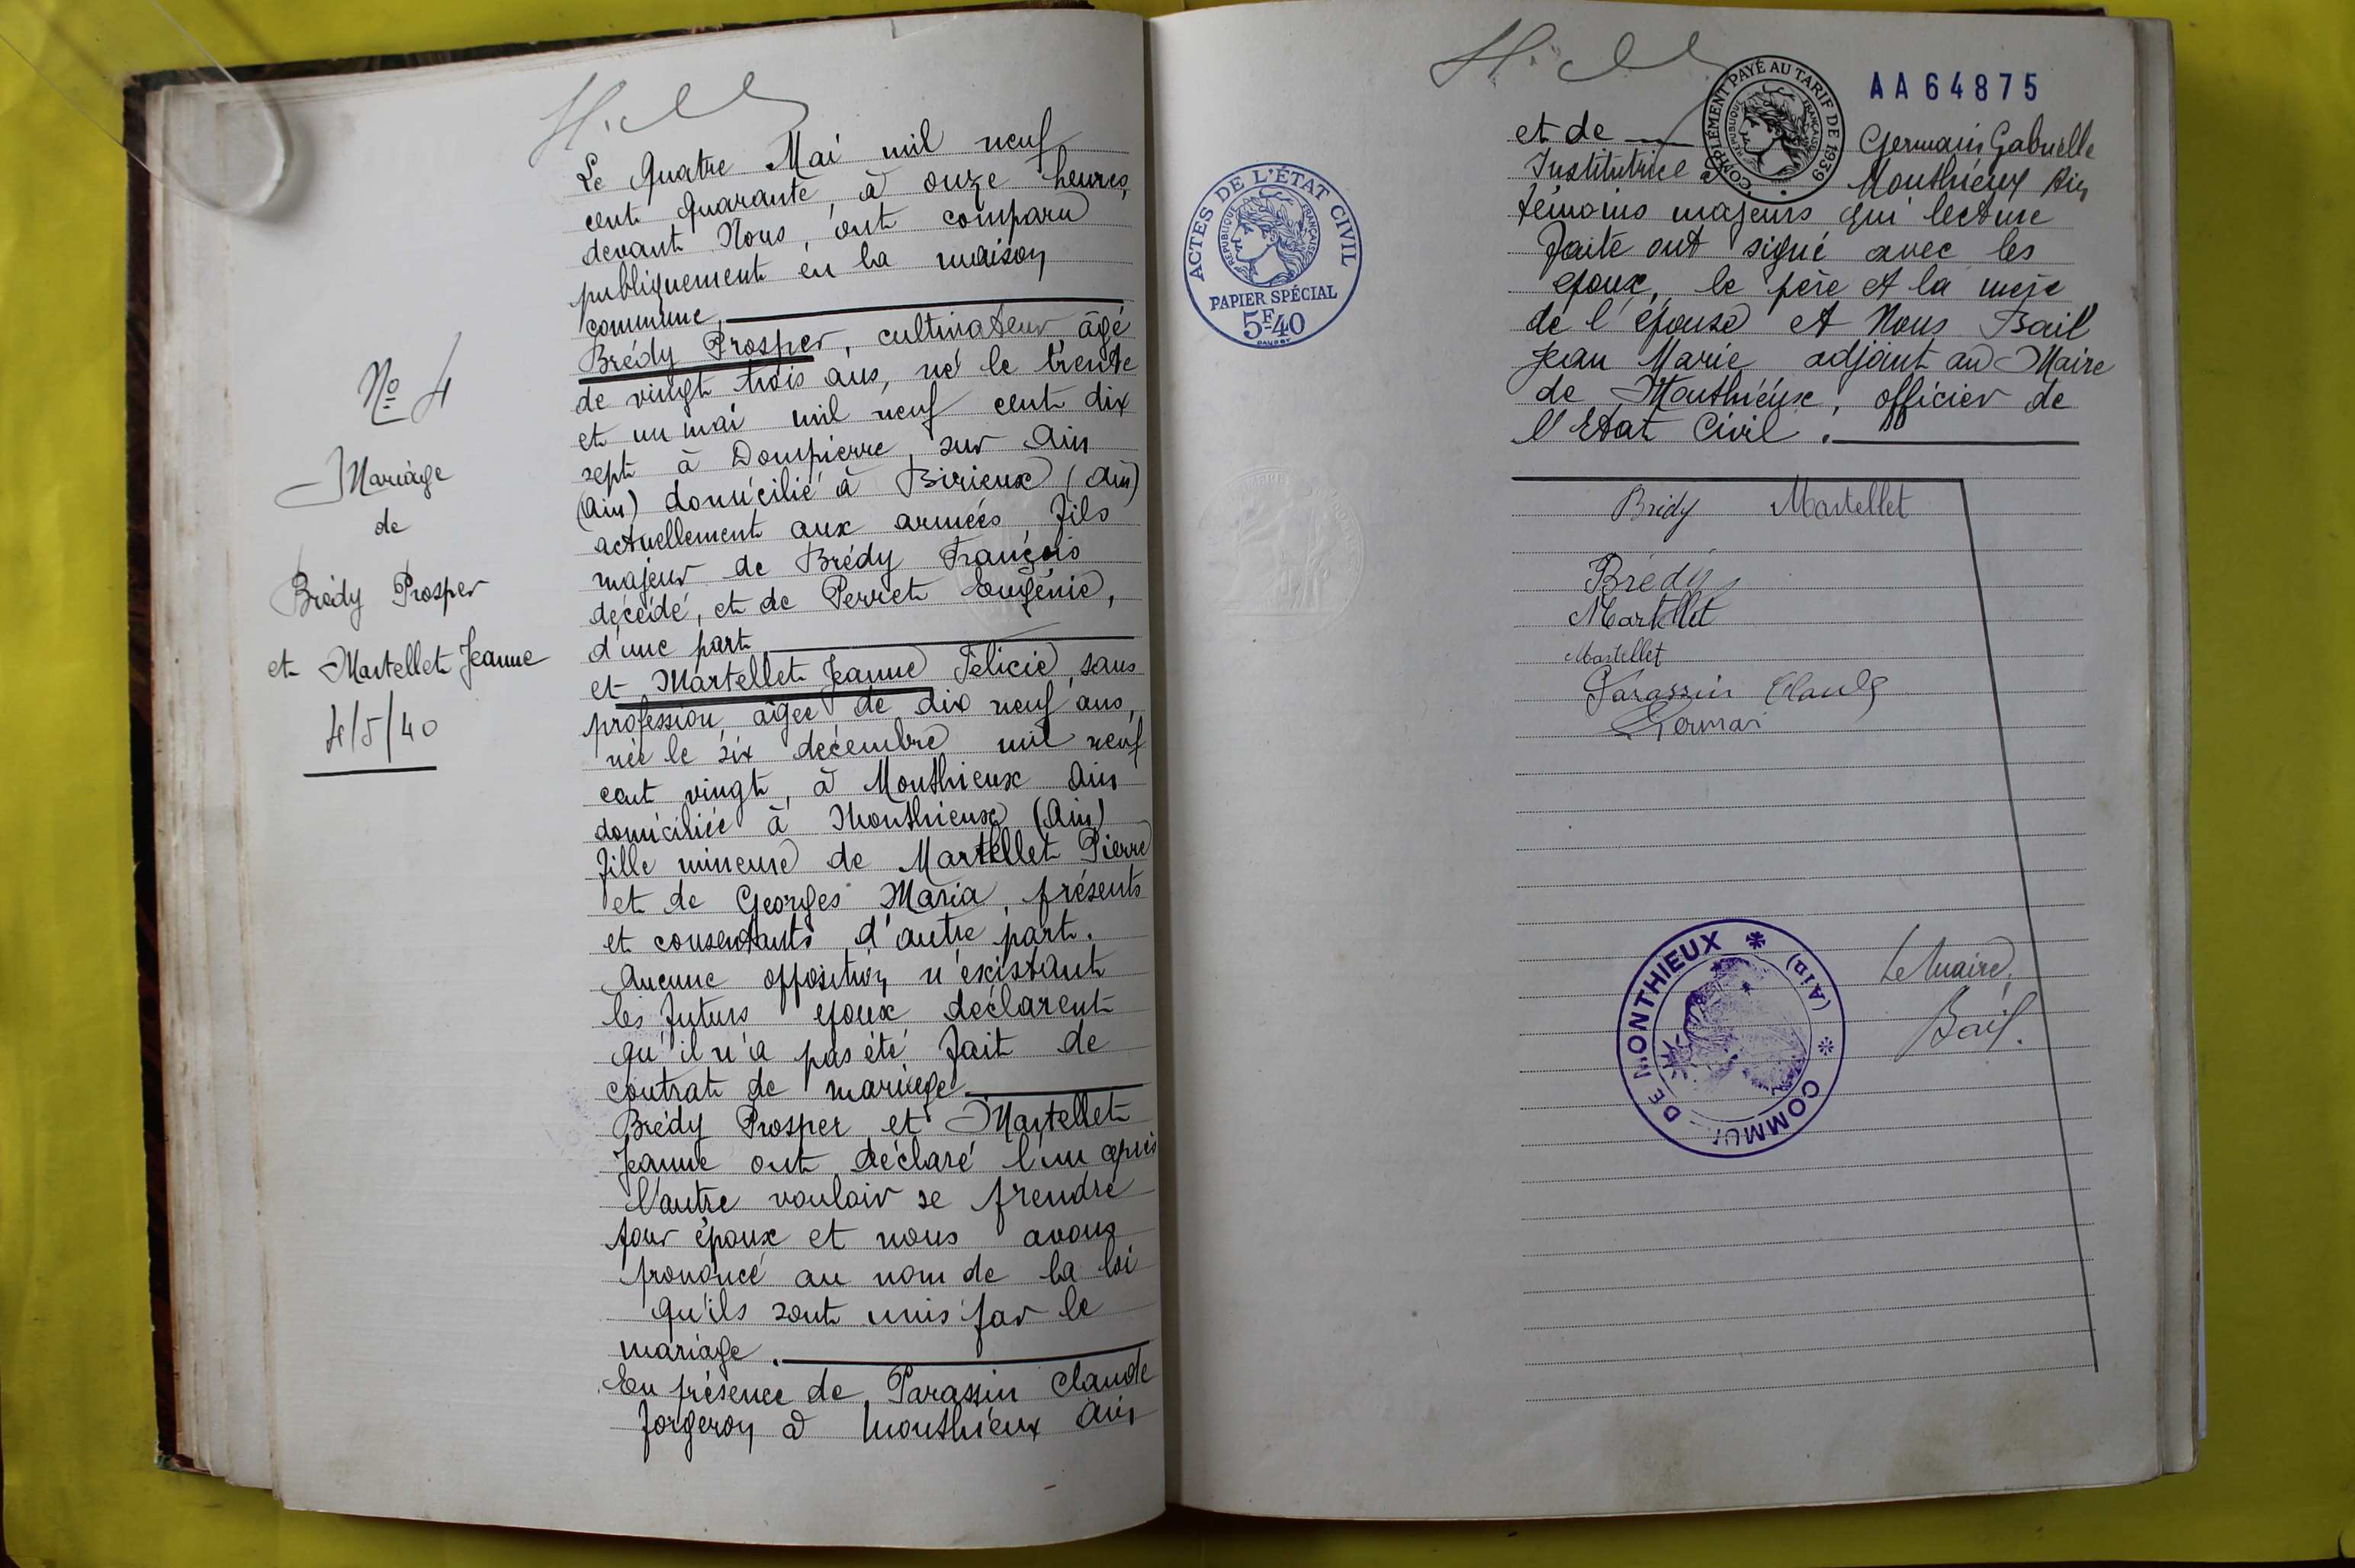 Nº 4
Mariage
de
Brédy Prosper
et Martellet Jeanne
4/5/40
Le Quatre Mai mil neuf
cent quarante, à onze heures,
devant Nous, ont comparu
publiquement en la maison
commune,
Brédy Prosper, cultivateur, âgé
de vingt trois ans, né le trente
et un mai mil neuf cent dix
sept à Dompierre sur Ain
(Ain) domicilié à Birieux (Ain)
actuellement aux armées, fils
majeur de Brédy François
décédé, et de Perret Eugénie,
d'une part
et Martellet Jeanne Félicie, sans
profession âgée de dix neuf ans,
née le six décembre mil neuf
cent vingt, à Monthieux Ain
domiciliée à Monthieux (Ain)
fille mineure de Martellet Pierre
et de Georges Maria, présents
et consentants d'autre part.
Aucune opposition n'existant
les futurs époux déclarent
qu'il n'a pas été fait de
contrat de mariage.
Brédy Prosper et Martellet
Jeanne ont déclaré l'un après
l'autre vouloir se prendre
pour époux et nous avons
prononcé au nom de la loi
qu'ils sont unis par le
mariage.
En présence de Parassin Claude
forgeron à Monthieux Ain
ACTES DE L'ÉTAT CIVIL
RÉPUBLIQUE FRANÇAISE
PAPIER SPÉCIAL
5F40
COMPLÉMENT PAYÉ AU TARIF DE 1939
RÉPUBLIQUE FRANÇAISE
AA64875
et de Germain Gabrielle
Institutrice à Monthieux Ain
témoins majeurs qui lecture
faite ont signé avec les
époux, le père et la mère
de l'épouse et Nous Bail
Jean Marie adjoint au Maire
de Monthieux, officier de
l'Etat Civil.
Brédy Martellet
Brédy
Martellet
Martellet
Parassin Claude
Germai
Le Maire,
Bail.
COMMUNE DE MONTHIEUX (Ain)